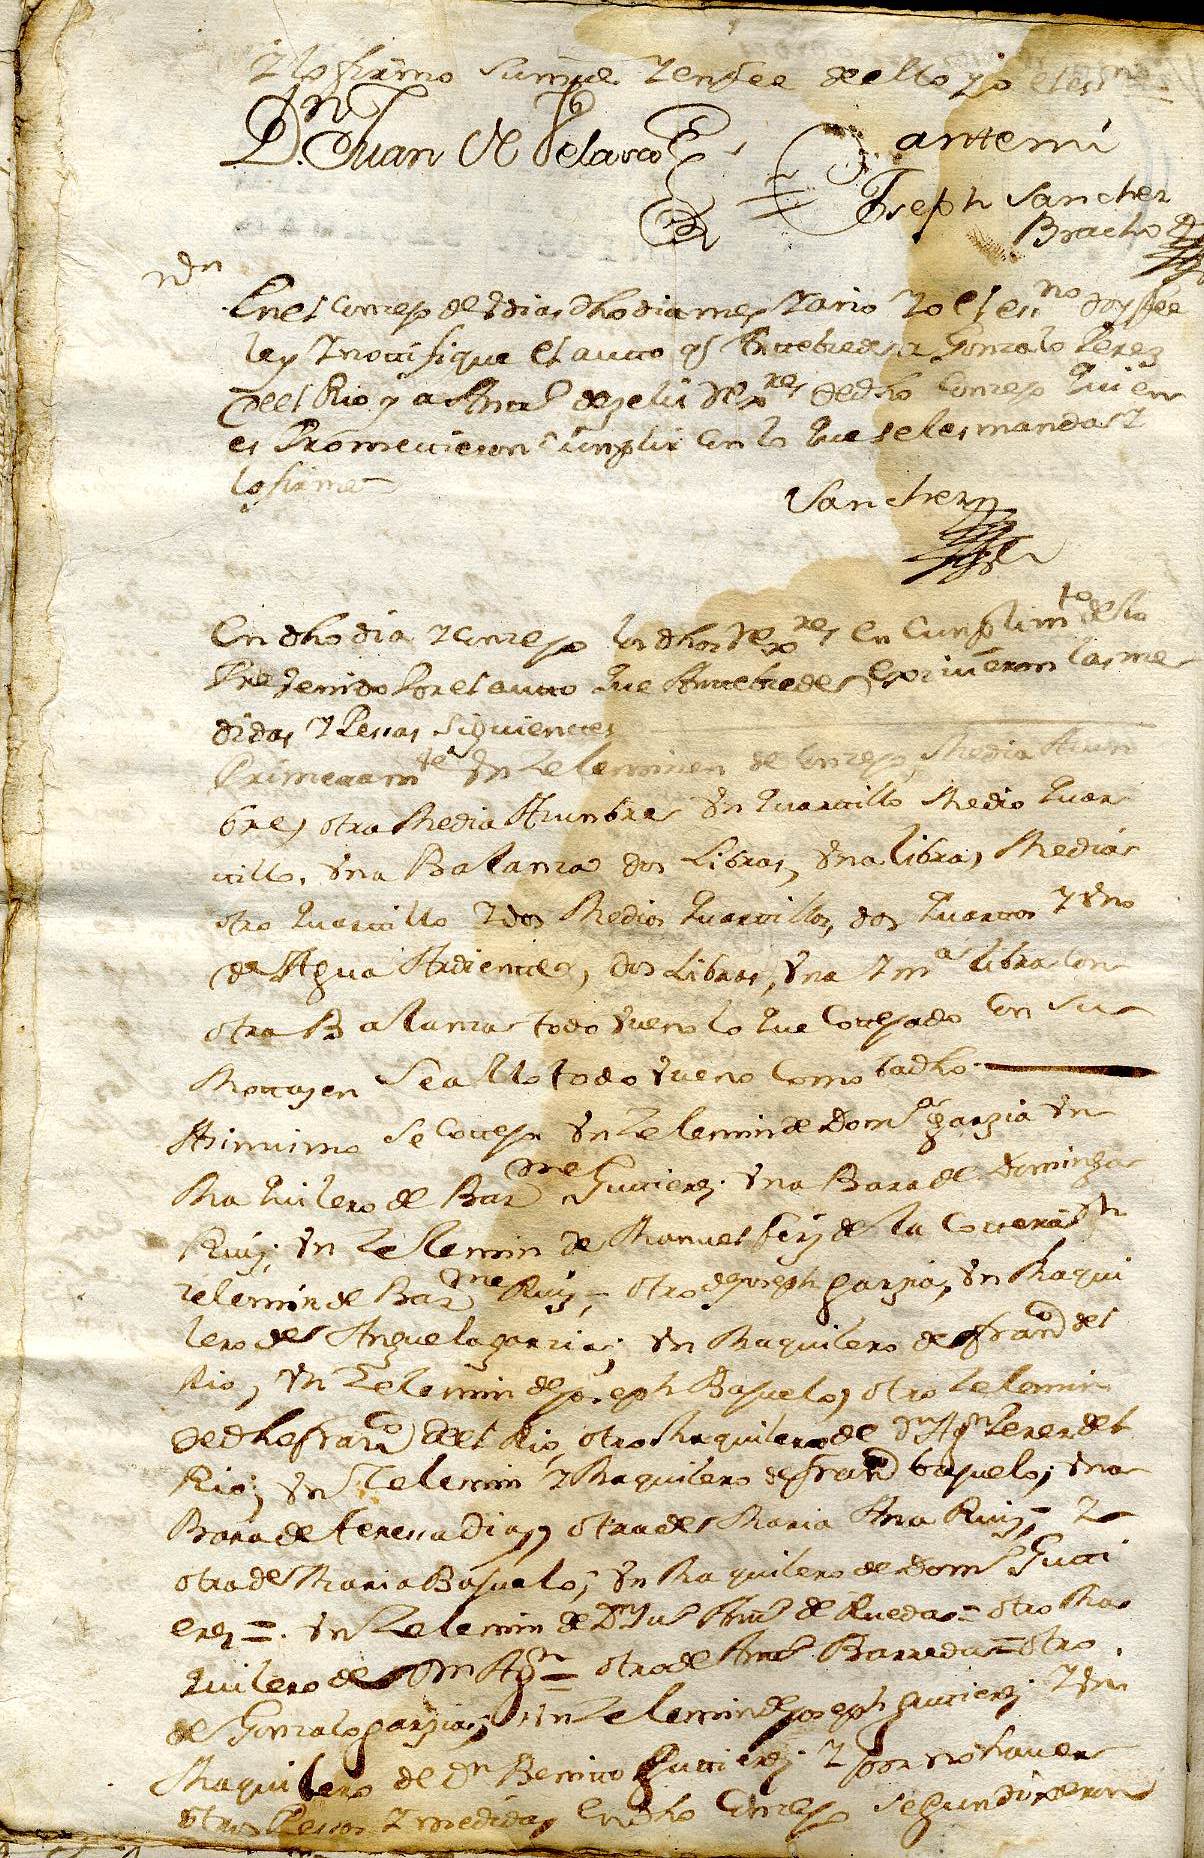 Y lo firmo su mrd y en fee de ello yo el essno
Dn Juan de Velasco
ante mi
Joseph Sanchez
Bracho
Non
En el Conzejo de dho dia mes y año yo el essno doy fee
ley y notifique el autto qe Antezede a Gonzalo Perez
del Rio y a Antto de Zelis Rexres de dho Conzejo quien
es Prometieron Cumplir con lo que se les manda y
lo firme
Sanchez
En dho dia y Conzejo los dhos Rexres en Cumplimto de lo
Prebenido Por el autto que Antezede esivieron las me
didas y Pessas Siguientes
Primeramte Un Zelemin de Conzejo, Media Azun
bre, otra Media Azunbre Un quartillo Medio quar
tillo, Una Balanza dos Libras, Una libra, Media
otro quartillo y dos Medios quartillos, dos quartos y Uno
de Agua Ardiente, dos Libras, Una y ma libra con
otra Balanza todo Vueno lo que Cotejado Con su
Motajen Se allo todo Vueno Como ba dho
Asimismo se Cotejo Un Zelemin de Domo garzia Un
Maquilero de Barme Gutierrez; Una Bara de Dominga
Ruiz; Un Zelemin de Manuel frz de la Cotera; Un
zelemin de Barme Ruiz = otro de Joseph garzia, Un Maqui
lero de Anguela garzia; Un Maquilero de franco del
Rio, Un Zelemin de Joseph Basuelo, otro Zelemin
de dho franco del Rio, otro Maquilero de Dn Agn Perez del
Rio; Un Zelemin y Maquilero de franco basuelo; Una
Bara de teressa Diaz, otra de Maria Ana Ruiz = Y
otra de Maria Basuelo; Un Maquilero de Domo Guti
erez = Un Zelemin de Dn Jul Antto de Rueda = otro Ma
quilero de Dn Agn = otro de Antto Barreda = otro
de Gonzalo garzia; Un Zelemin de Joseph gutierez; Y Un
Maquilero de Dn Benitto Gutierez; Y por no haver
otras Pessas y medidas en dho Conzejo segun dixeron